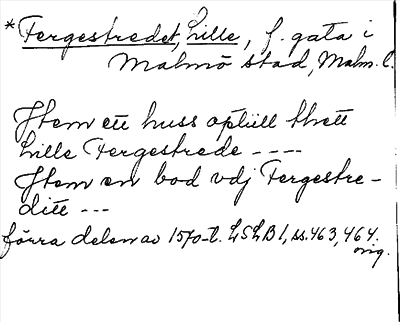 *Fergestredet, Lille, f. gata i
Malmö stad, Malm. l.
Jtem ett huss optiill thett
Lille Fergestrede ----
Jtem en bod vdj Fergestre-
ditt ---
förra delen av 1570-t. LSLB 1, ss. 463, 464.
orig.